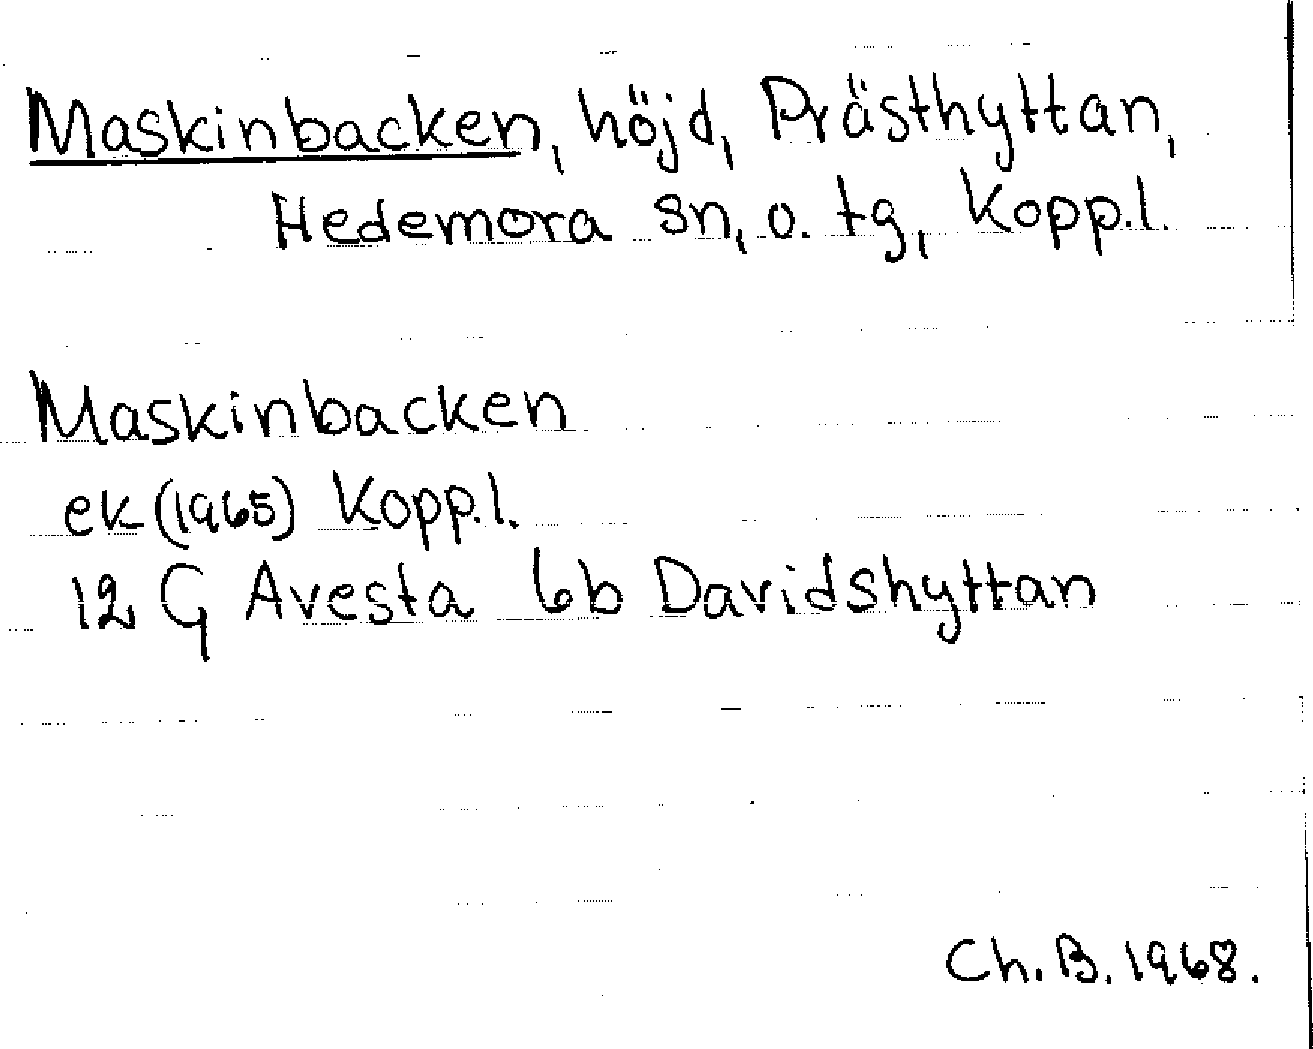 Maskinbacken, höjd, Prästhyttan,
Hedemora sn, o. tg, Kopp.l.
Maskinbacken
ek (1965) Kopp.l.
12 G Avesta 6b Davidshyttan
Ch. B. 1968.